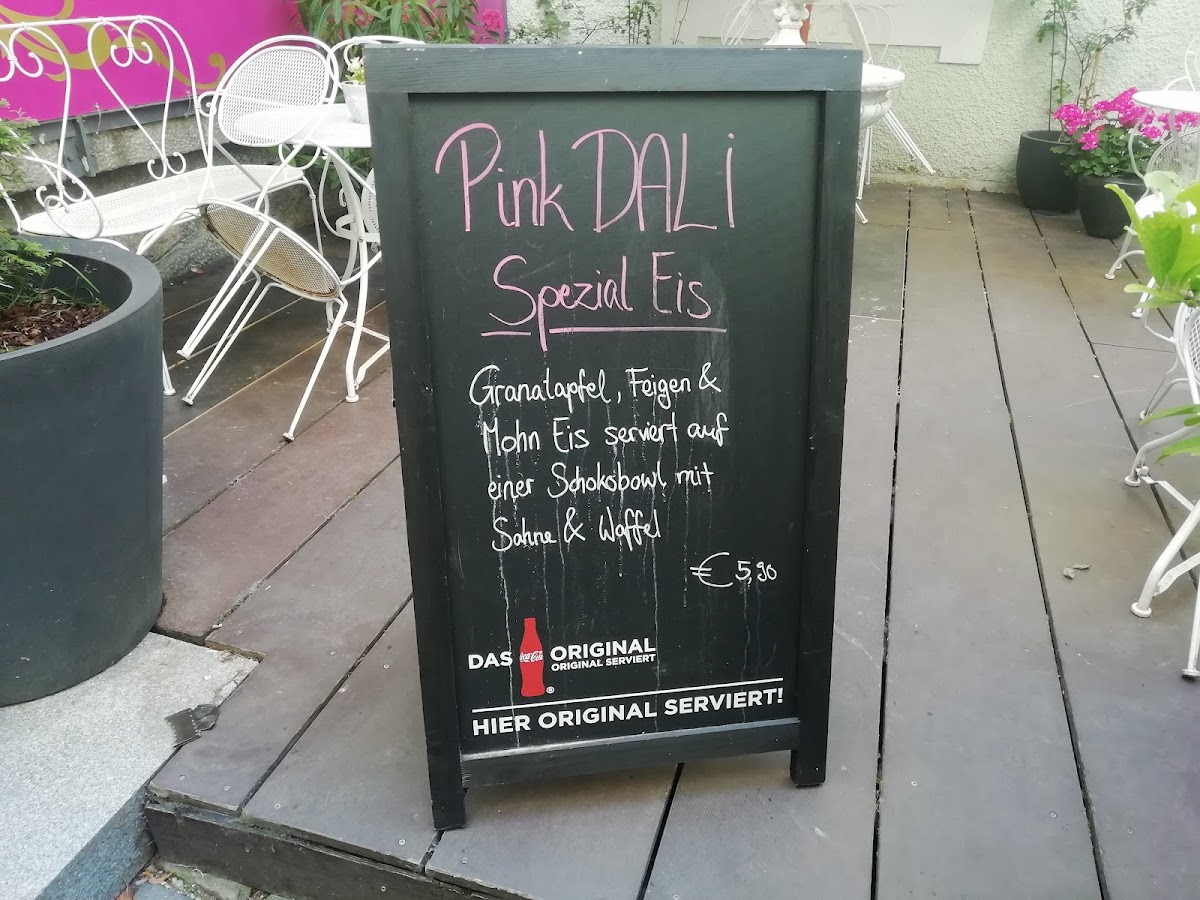 Pink DALi
Spezial Eis
Granatapfel, Feigen &
Mohn Eis serviert auf
einer Schoksbowl mit
Sahne & Waffel
€ 5,90
DAS Coca-Cola ORIGINAL
ORIGINAL SERVIERT
®
HIER ORIGINAL SERVIERT!